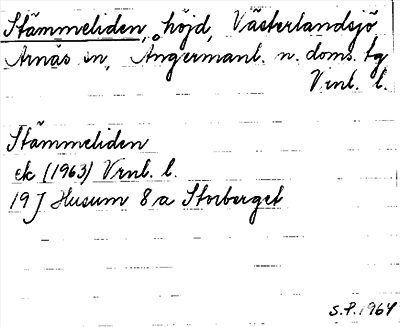 Stämmeliden, höjd, Västerlandsjö
Arnäs sn, Ångermanl. n. doms. tg
Vrnl. l.
Stämmeliden
ek (1963) Vrnl. l.
19 J Husum 8 a Storberget
S.P. 1964